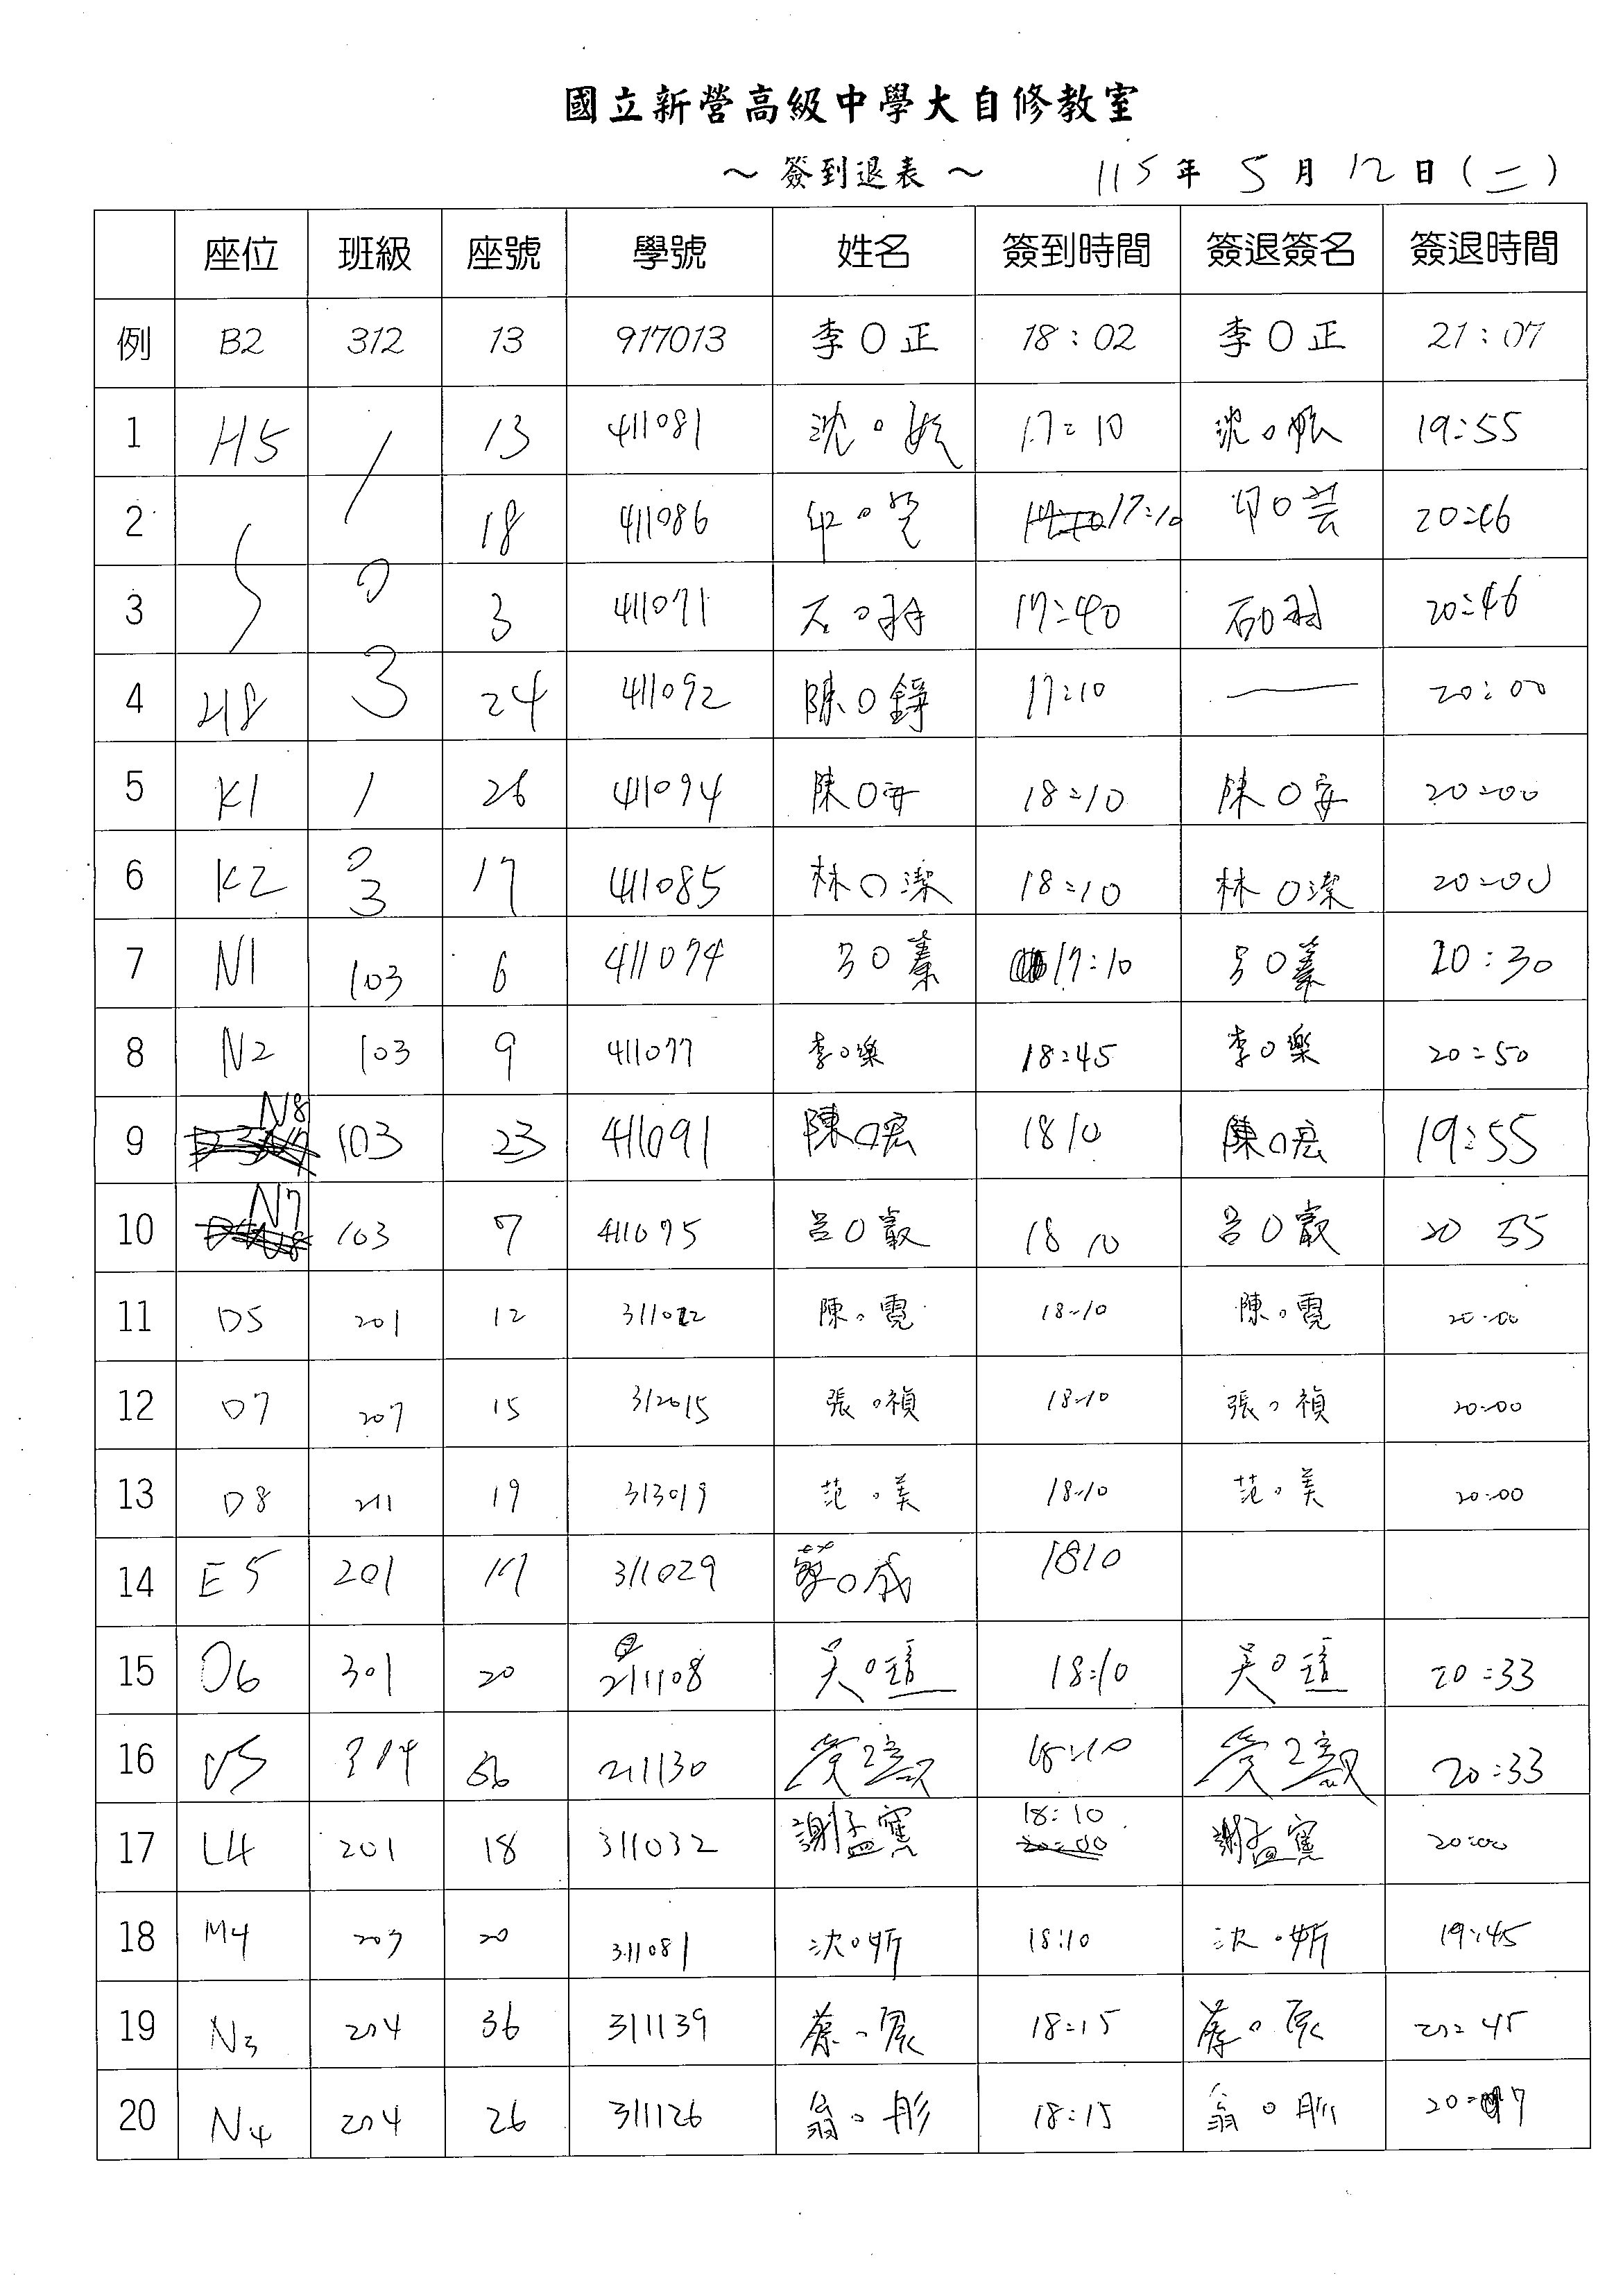 國立新營高級中學大自修教室
～簽到退表～ 115年5月12日(二)
座位 班級 座號 學號 姓名 簽到時間 簽退簽名 簽退時間
例 B2 312 13 917013 李O正 18:02 李O正 21:07
1 H5 1 13 411081 沈O 17:10 沈O 19:55
2 18 411086 印O 17:10 印O芸 20:46
3 0 3 411071 石O羽 17:40 石O羽 20:46
4 H8 3 24 411092 陳O錚 17:10 — 20:00
5 K1 1 26 411094 陳O安 18:10 陳O安 20:00
6 K2 03 17 411085 林O潔 18:10 林O潔 20:00
7 N1 103 6 411074 呂O蓁 17:10 呂O蓁 20:30
8 N2 103 9 411077 李O樂 18:45 李O樂 20:50
9 N8 103 23 411091 陳O宏 1810 陳O宏 19:55
10 N7 103 7 411075 呂O叡 18 10 呂O叡 20 55
11 D5 201 12 311022 陳O霓 18:10 陳O霓 20:00
12 D7 207 15 312015 張O禎 18:10 張O禎 20:00
13 D8 211 19 313019 范O美 18:10 范O美 20:00
14 E5 201 17 311029 蔡O成 1810
15 O6 301 20 211108 吳O 18:10 吳O 20:33
16 314 211130 18:10 20:33
17 L4 201 18 311032 謝孟寰 18:10 謝孟寰 20:00
18 M4 203 20 311081 沈O妡 18:10 沈O妡 19:45
19 N3 204 36 311139 蔡O宸 18:15 蔡O宸 20:45
20 N4 204 26 311126 翁O彤 18:15 翁O彤 20:47